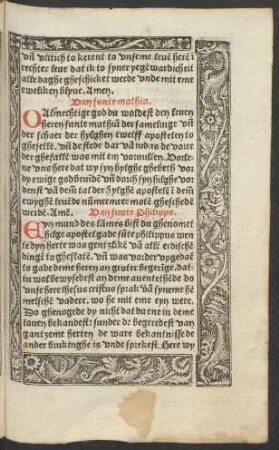 vñ vlitich to kerent to vnseme leuē herē ī
rechter leue dat ik to syner yegē wardicheit
alle daghe gheschicket werde vnde mit eme
ewelikē blyue. Amen.
Van sunte mathia.
O Almechtige god du woldest den leuen
heren sunte mathiā der samelinge vñ
der schaer der hylghen twelff apostelen to
ghesellē. vñ de stede dar vā iudas de vorre
der ghefallē was mit em voruullen. Vorlene
vns here dat wy syn hylghe ghebeth vor
dy ewige godt vñ dorch syn hilge vor
denst vā dem tal der hylghē apostelē ī dem
ewyghē leuēde nūmermer mote ghescheder
werdē. Amē. Van sunte Philippo.
Eyn mund des lāmes bist du ghenomet
hilge apostel gades sūte philippus wēt
to dyn herte was gentzlikē vā alle erdischē
dinge to ghestalt. vñ was vorder vpgedaē
to gade deme heren an groter begerige. dat
tu wol bewysedest an deme auentethēde do
vnse here ihesus cristus sprak vā syneme hē
melschē vadere. wo he mit eme eyn were.
Do ghenogede dy nicht dat du ene in deme
louen bekandest: sunder du begeredest van
gantzeme herten de ware bekantnisse de
ander brukinghe is vnde sprekest. Here wy